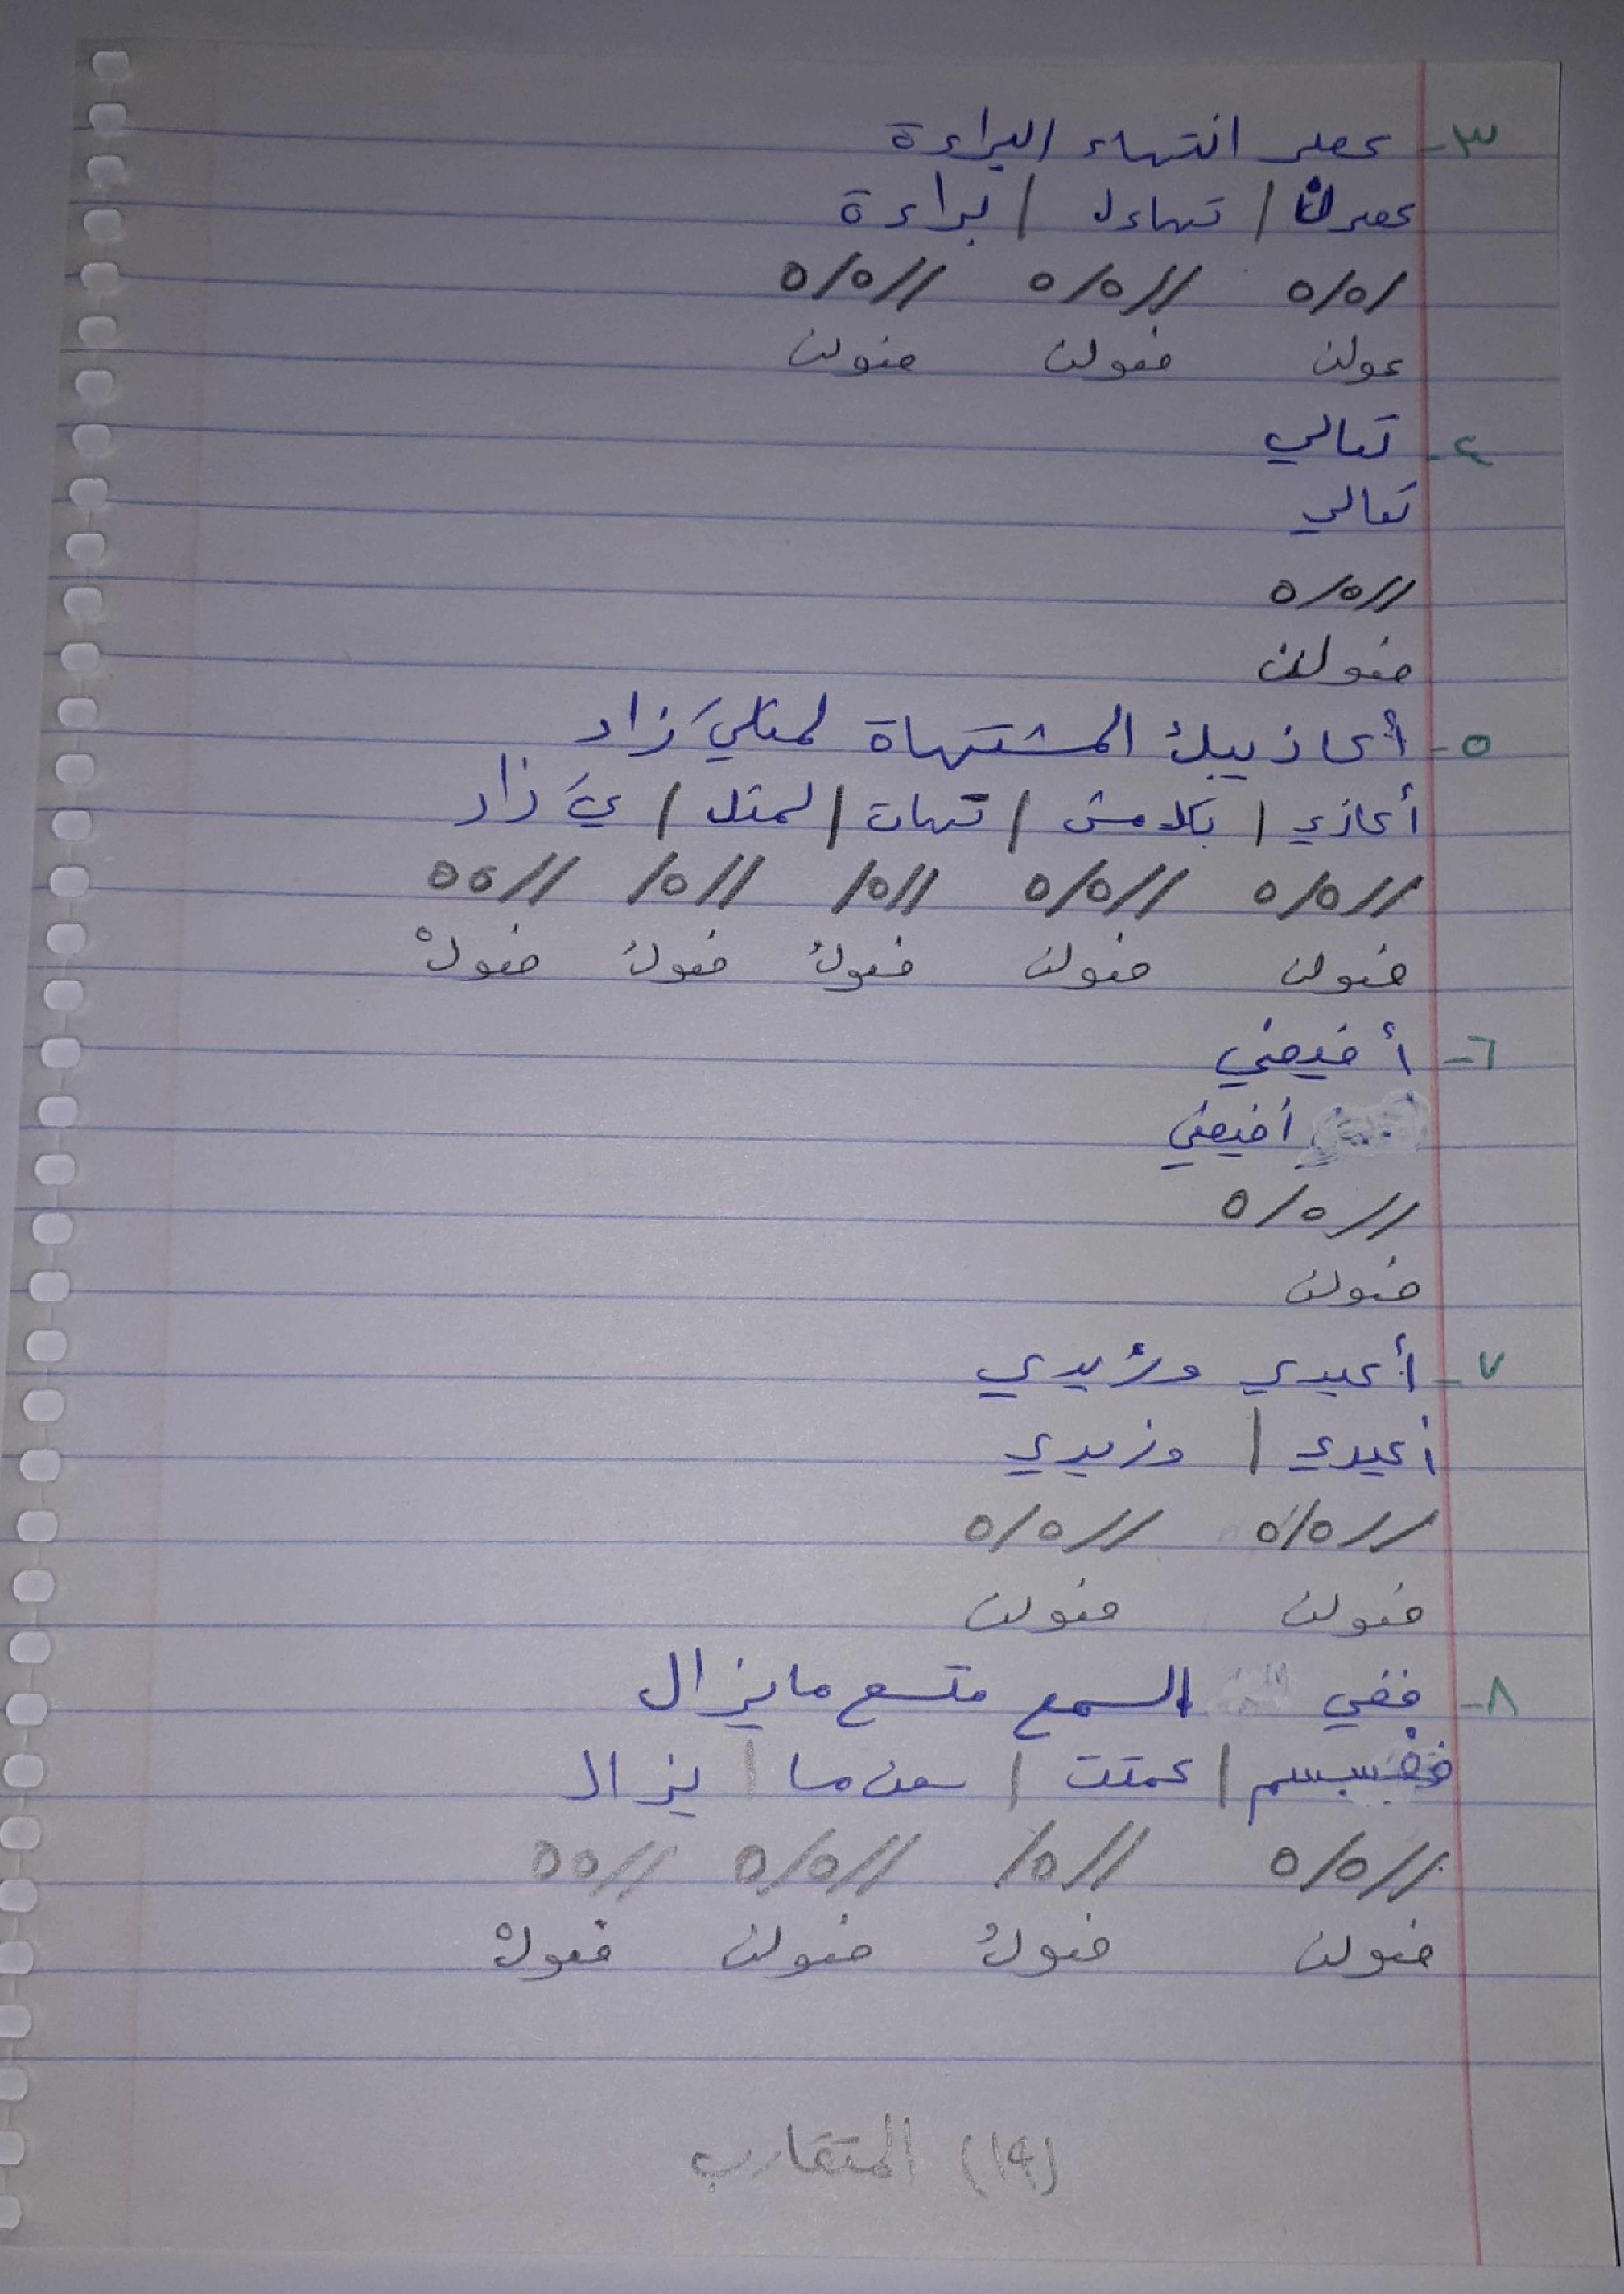 ٣- عصر انتهاء البراءة
عصرن / تهاءل / براءة
/٥/٥ //٥/٥ //٥/٥
عولن فعولن فعولن
٤- تعالي
تعالي
//٥/٥
فعولن
٥- أعاذيبك المشتهاة لمثليَ زاد
أعاذي / بكلمش / تهات / لمثل / يَ زاد
//٥/٥ //٥/٥ //٥/ //٥/ //٥٥
فعولن فعولن فعولُ فعولُ فعولْ
٦- أفيضي
أفيضي
//٥/٥
فعولن
٧- أعيدي وزيدي
أعيدي / وزيدي
//٥/٥ //٥/٥
فعولن فعولن
٨- ففي السمع متسع ما يزال
ففسسم / عمتت / سعن ما / يزال
//٥/٥ //٥/ //٥/٥ //٥٥
فعولن فعولُ فعولن فعولْ
(١٤) المتقارب